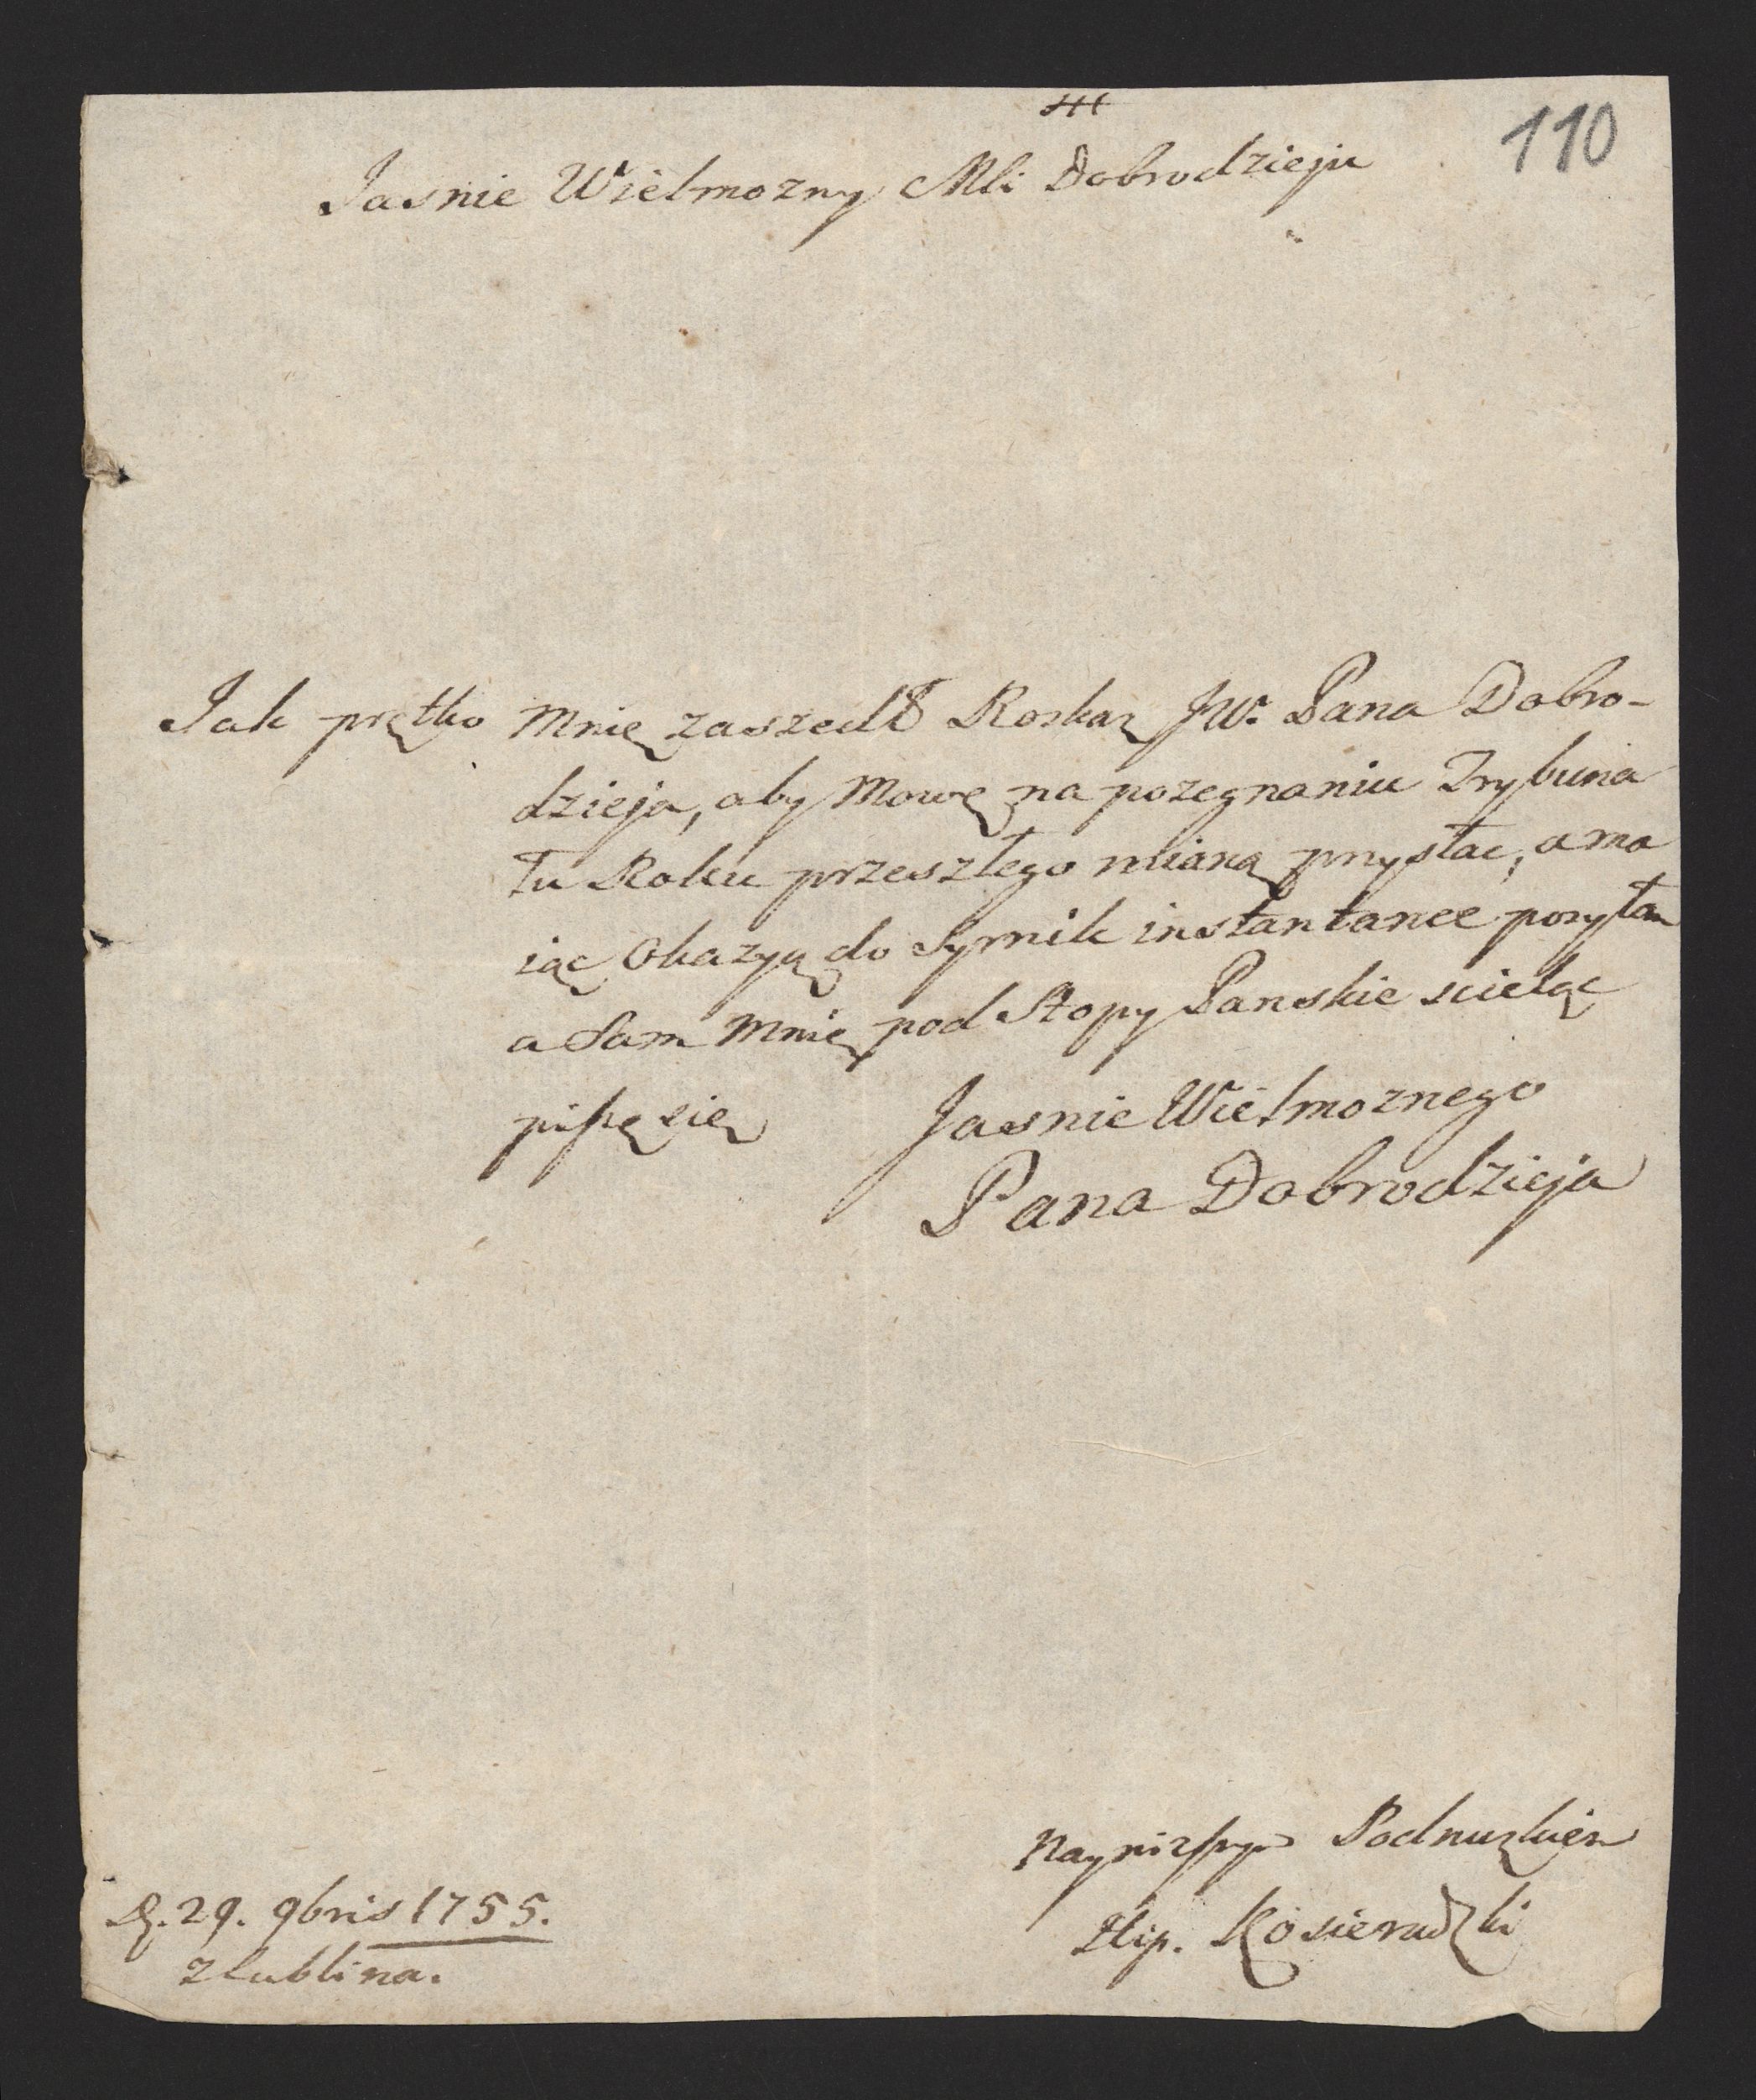 110
Jasnie Wielmozny Mli Dobrodzieju
Jak prętko mnię zaszedł Roskaz JW. Pana Dobro-
dzieja, aby Mowę na pozegnaniu Trybuna
łu Roku przeszłego mianą przysłac, a ma
iąc Okazyą do Syrnik instantanee posyłam
a Sam mnię pod Stopy Panskie scieląc
piszę się Jasnie Wielmoznego
Pana Dobrodzieja
Nayniszym Podnuzkiem
Hip. Kosieradzki
D. 29. 9bris 1755.
z Lublina.